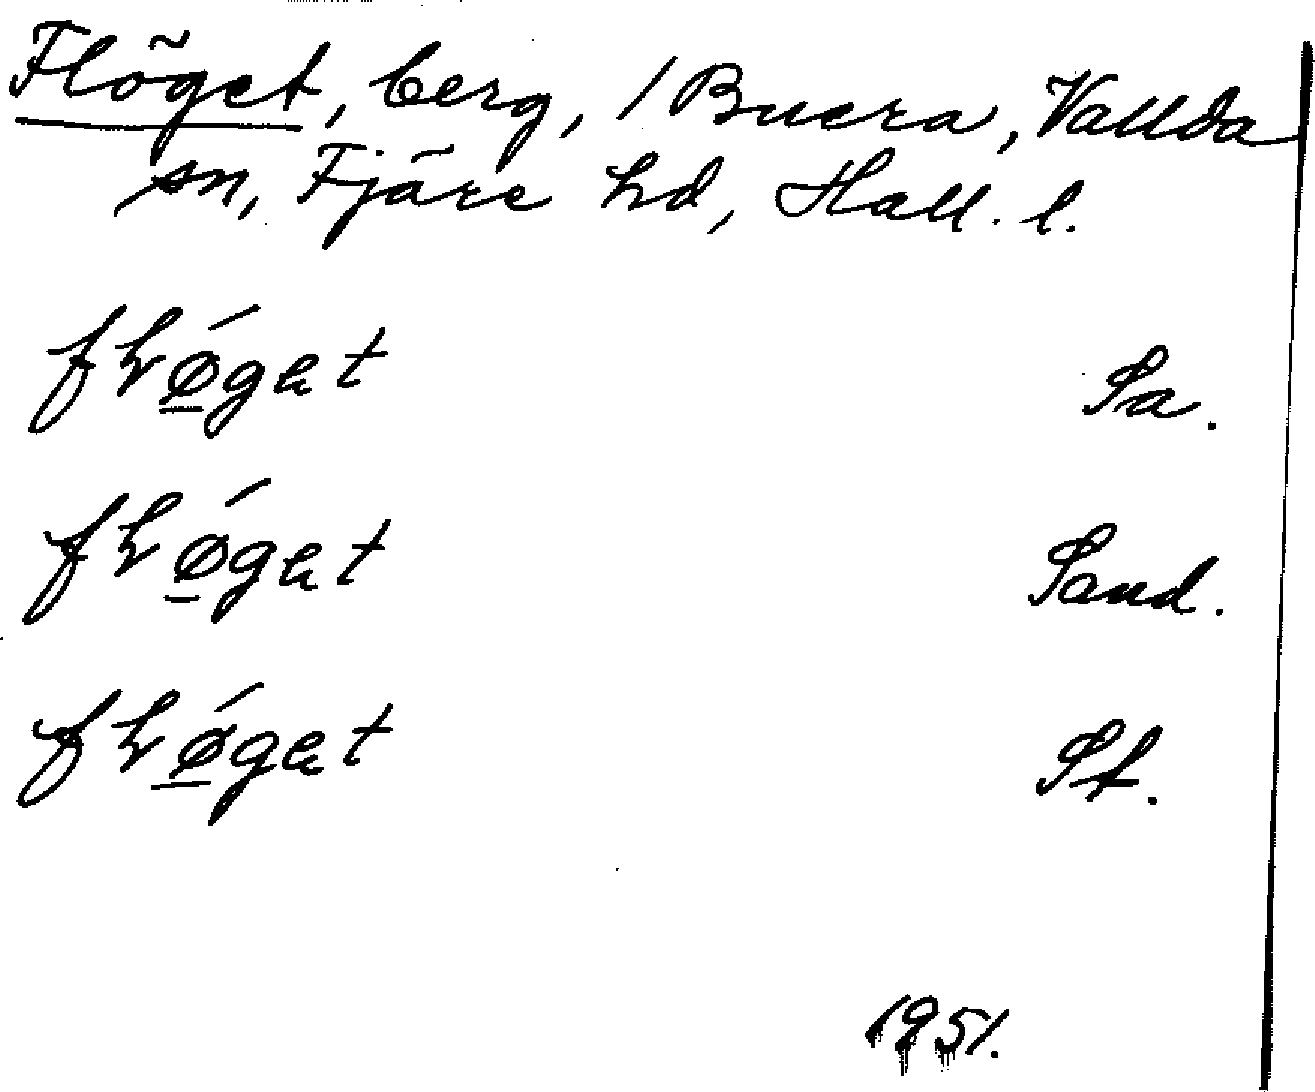 Flöget, berg, 1 Buera, Vallda
sn, Fjäre hd, Hall. l.
fłǿ̲gət Sa.
fłǿ̲gət Sand.
fłǿ̲gət St.
1951.